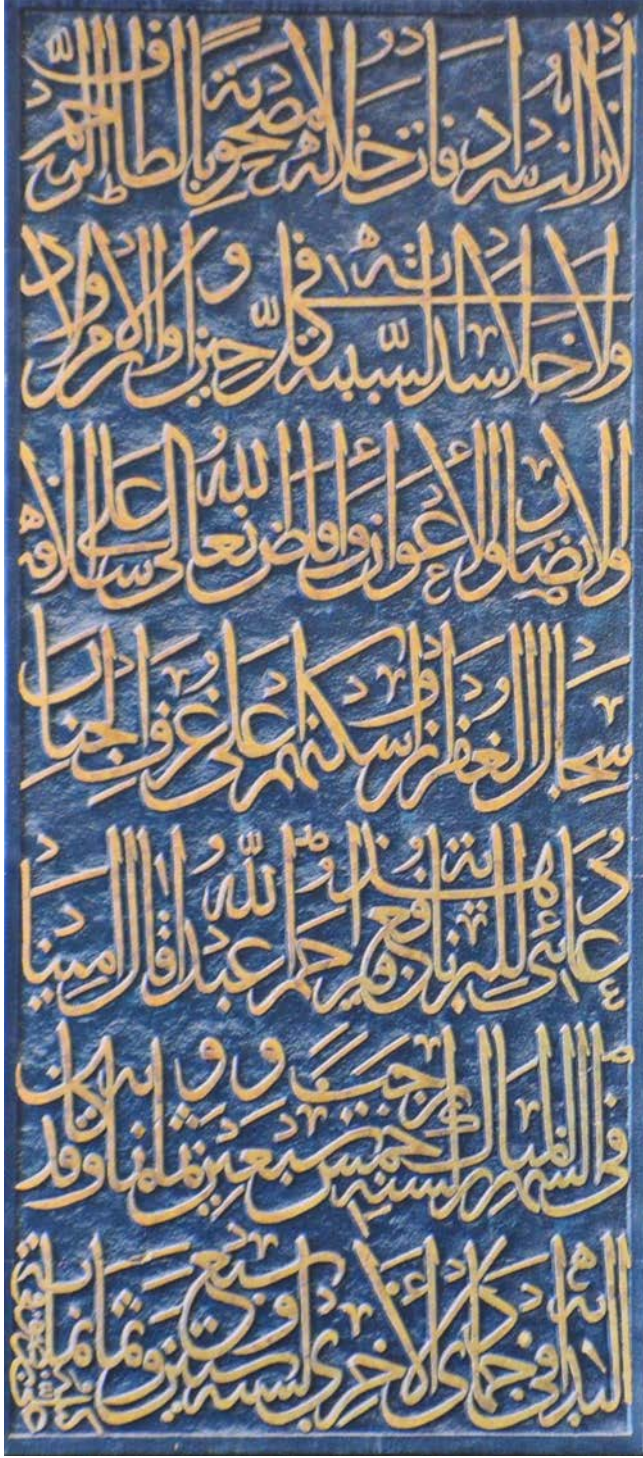 لا زالت سرادقات جلاله مصحوبة بالطاف الرحمن
ولا خلا سدته السنية في كل حين واوان
والانصار والاعوان وافاض الله تعالى على اسلافه
سجال الغفران واسكنهم على غرف الجنان
دعائي للبرية نافع هذا ويرحم الله عبدا قال امينا
في الشهر المبارك رجب لسنة خمس وسبعين وثمانمائة وقد كان
البداية في جمادى الأخرى لسنة سبع وستين وثمانمائة